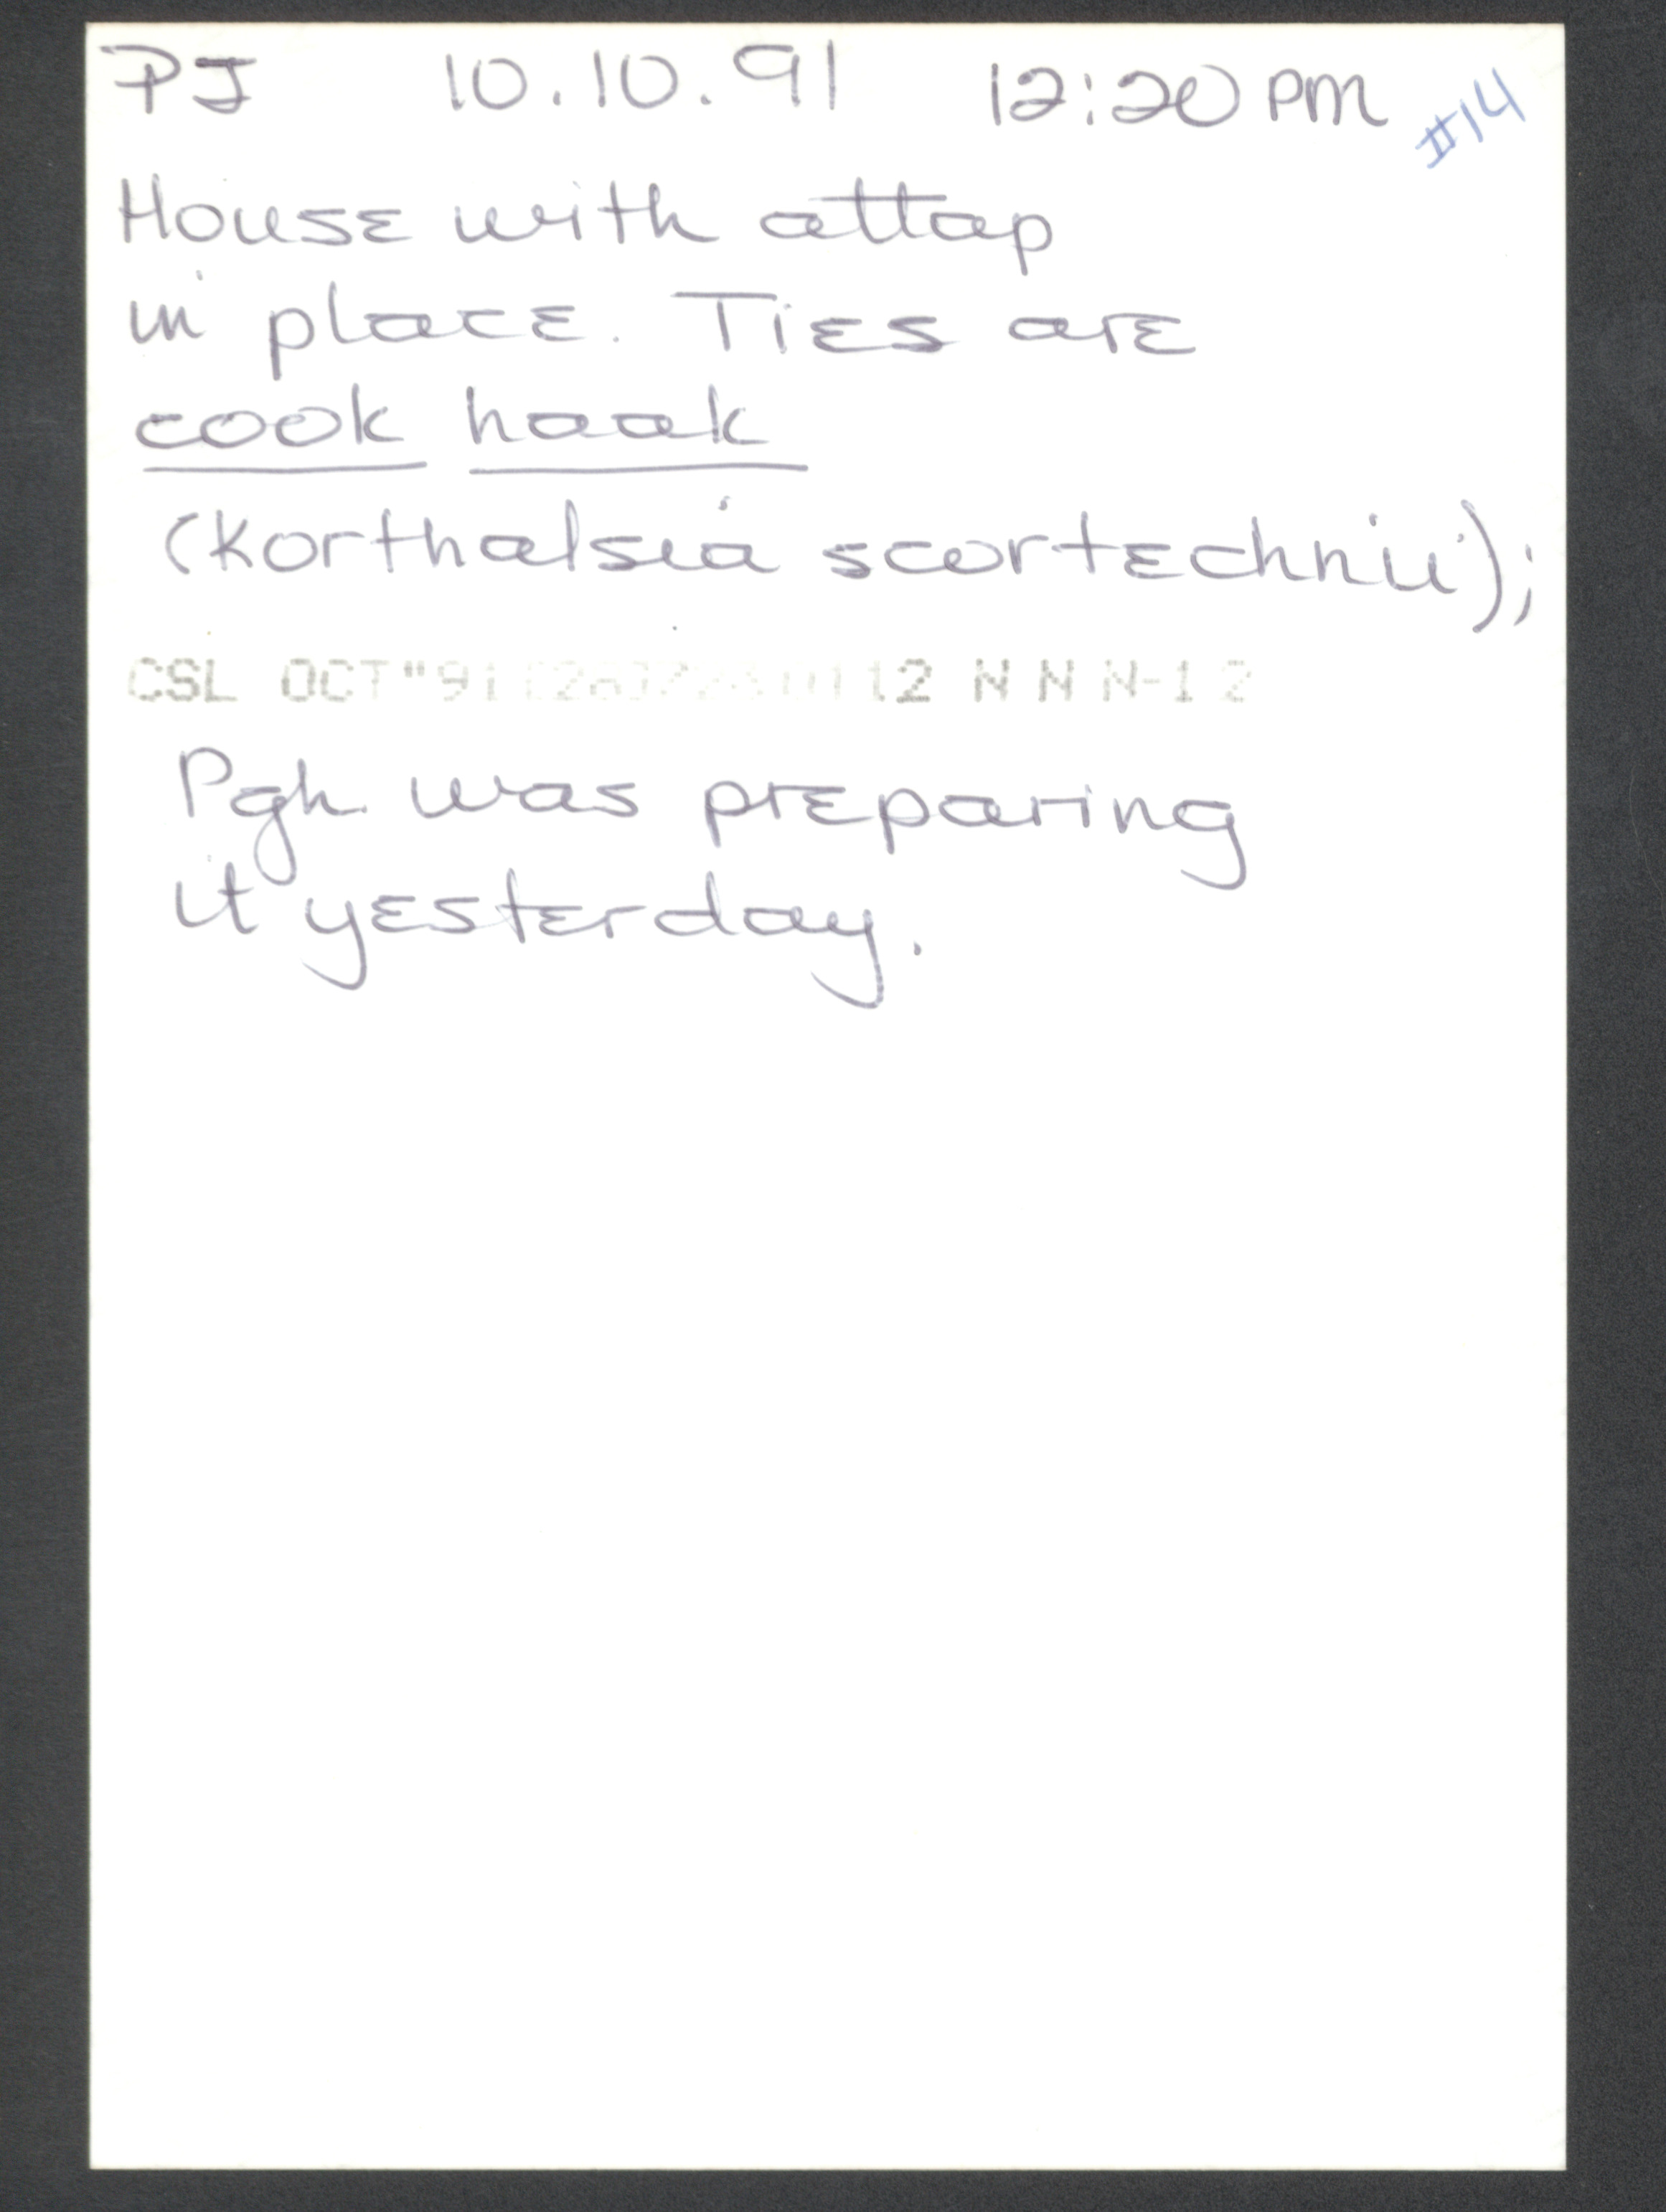 PJ 10.10.91 12:20 PM #14
House with attap
in place. Ties are
cook haak
(Korthalsia scortechnii);
CSL OCT"91 12 N N N-12
Pgh was preparing
it yesterday.